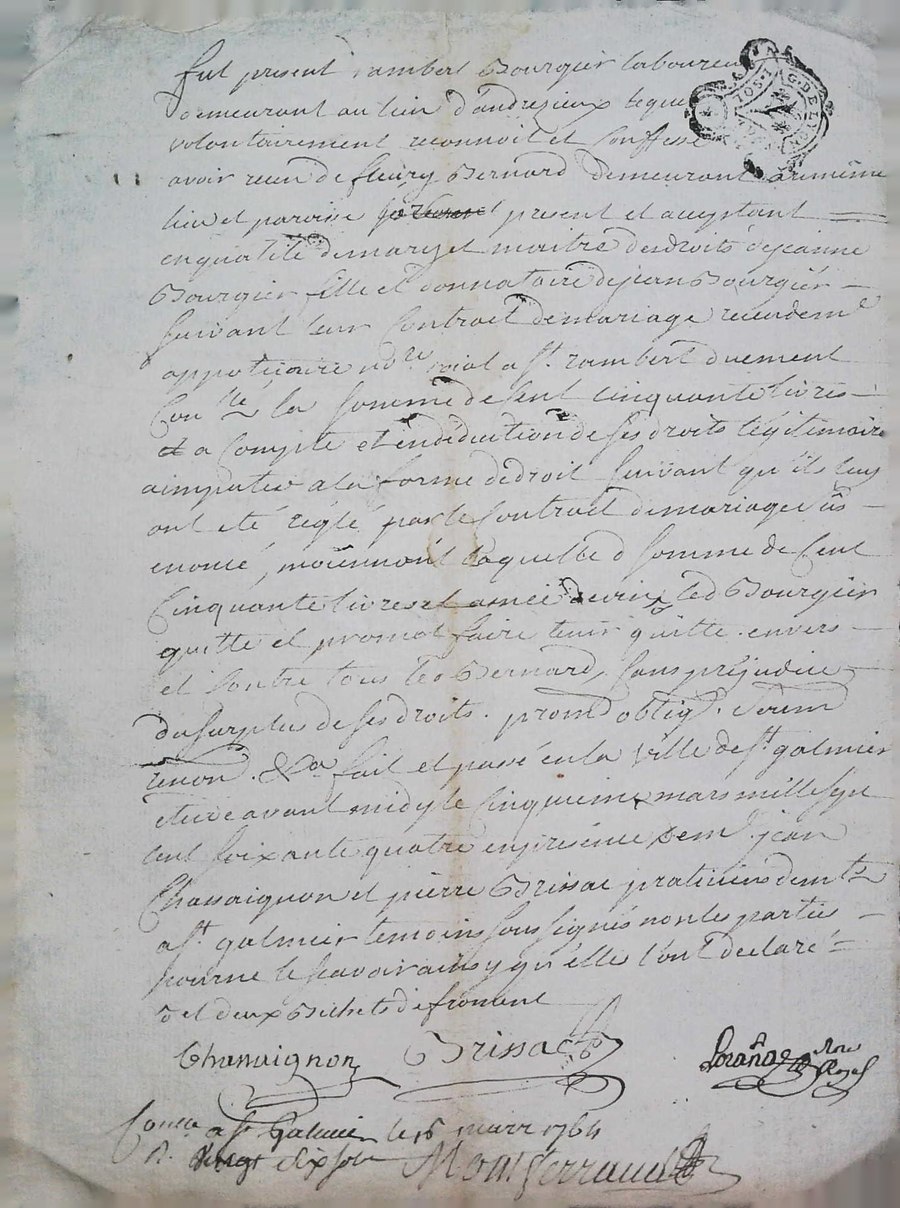 fut present rambert Bourgier laboureur
demeurant au lieu d'andrezieux lequel
volontairement reconnoit et Confesse
avoir receu de fleury Bernard demeurant au même
lieu et paroisse present et acceptant
en qualité de mary et maitre des droits de jeanne
Bourgier fille et donnataire de jean Bourgier
suivant leur Contract de mariage receu de me
appoticaire nore roial a st. rambert duement
Conlle la somme de Cent cinquante livres
et a Compte et en déduction de ses droits légitimaires
a imputer a la forme de droit suivant qu'ils luy
ont eté réglé par le Contract de mariage sus
enoncé, moiennant laquelle d somme de Cent
Cinquante livres led Bourgier
quitte et promet faire tenir quitte envers
et Contre tous led Bernard, sans préjudice
du surplus de ses droits. promd obligt. soumd
renon. &a fait et passé en la ville de st. galmier
etude avant midy le Cinquieme mars mille sept
cent soixante quatre en présence de me. jean
Chassaignon et pierre Brissac praticiens demts
a st. galmier temoins soussignés non les parties
pour ne le scavoir ainsy qu'elle l'ont declaré
et deux Bichets de froment
Chassaignon Brissac nore Royal
Conllé a st Galmier le 16 mars 1764
R. vingt dix sols Montferrand
G. DE LION
1. SOL